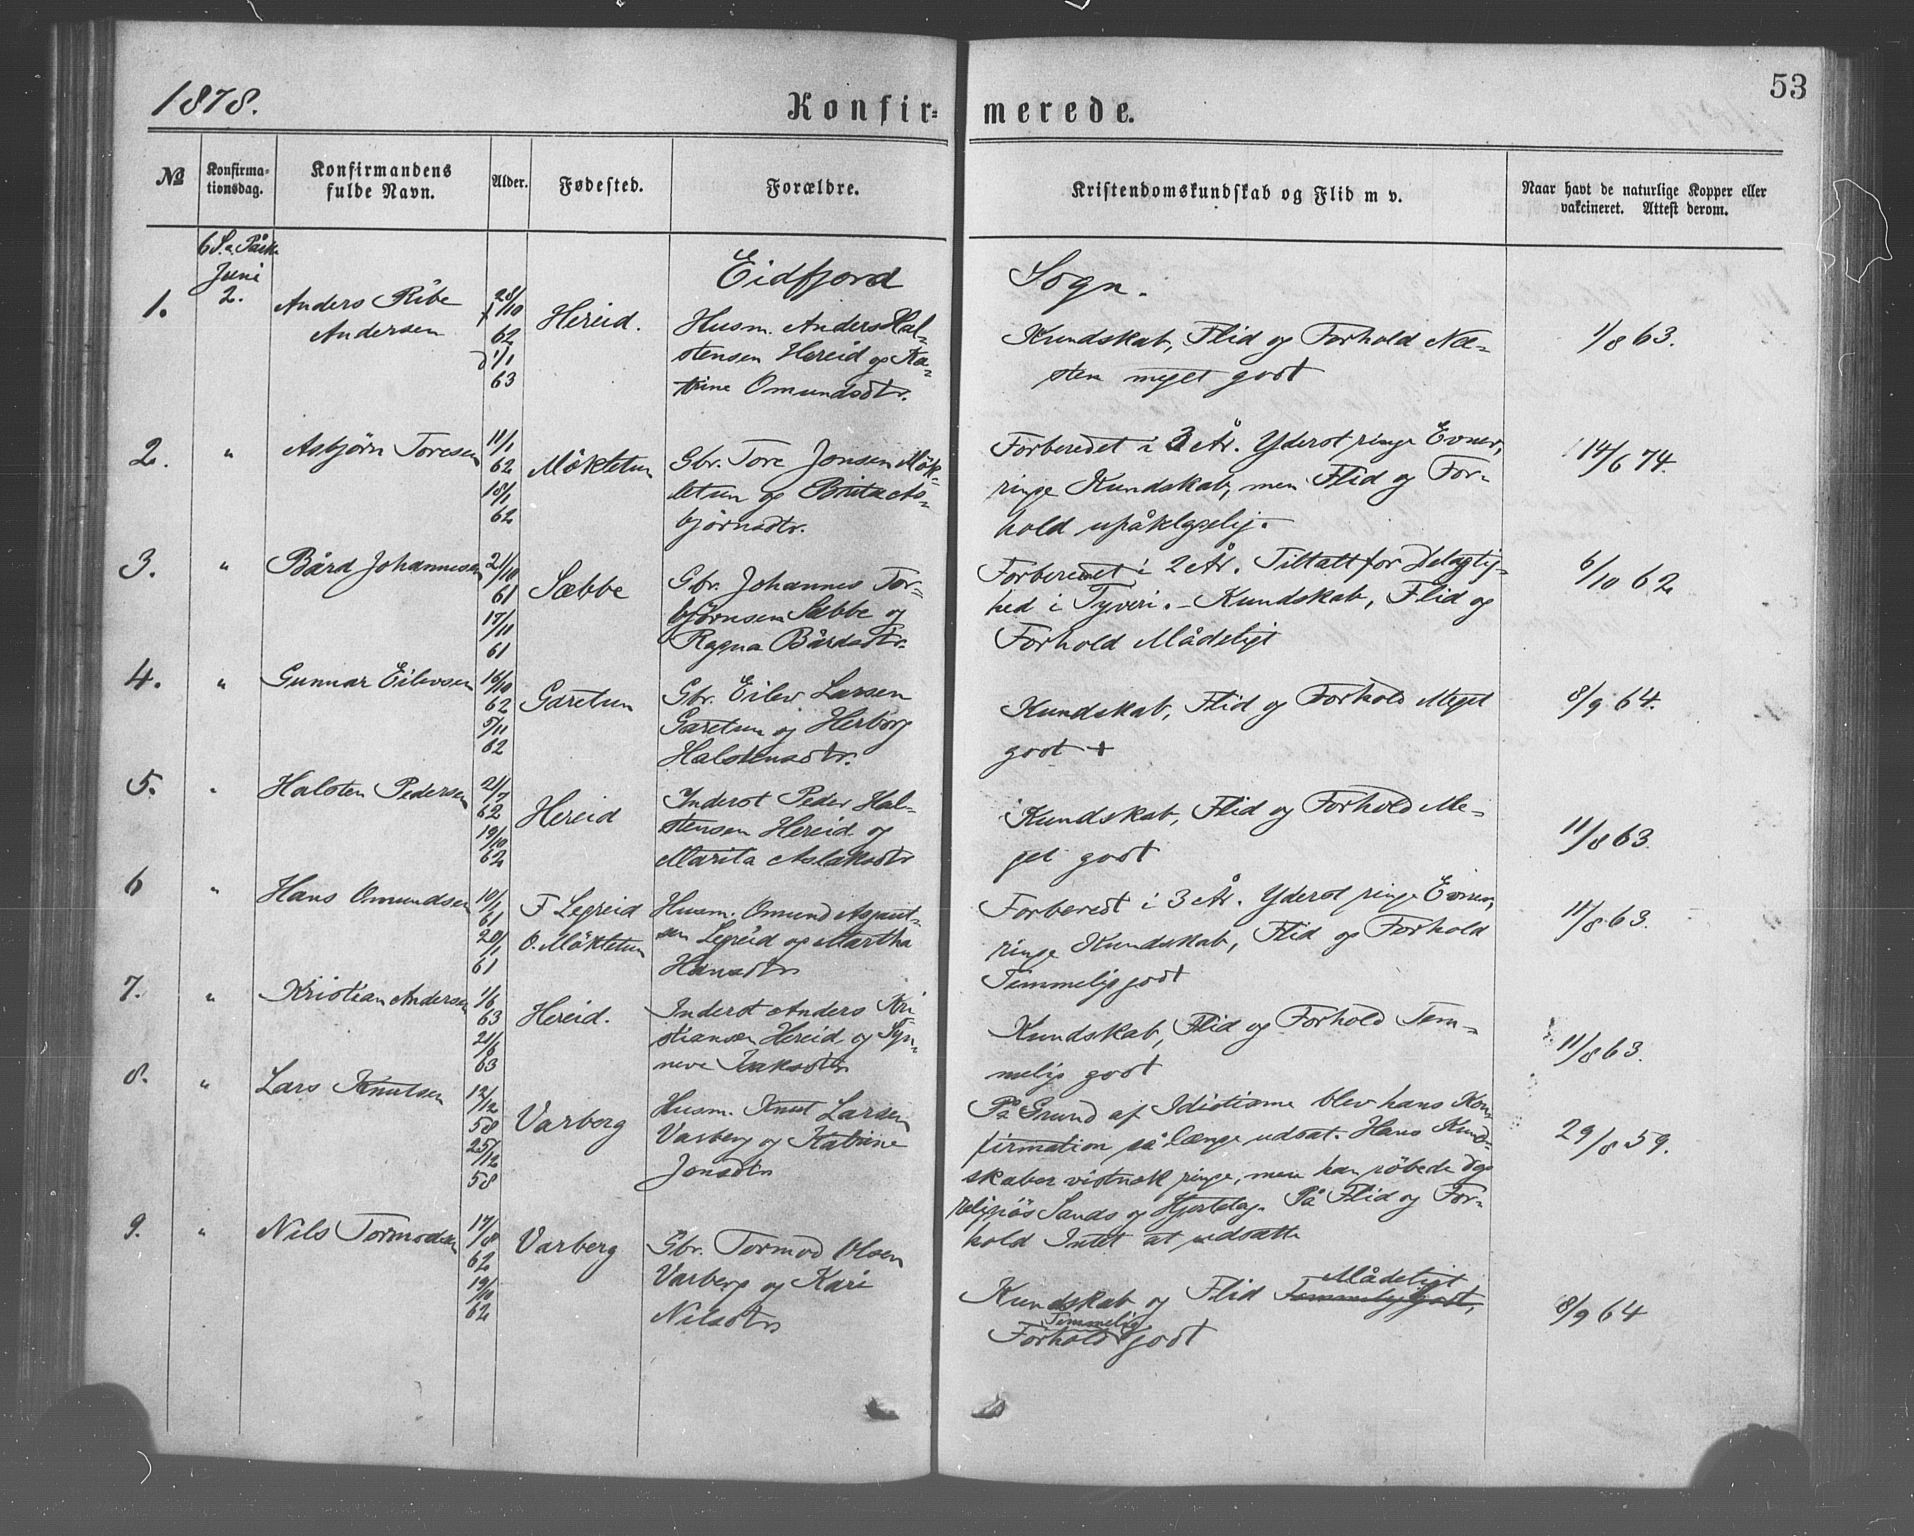 1878.
Konfir= merede.
53
№
Konfirma-
tionsdag.
Konfirmandens
fulde Navn.
Alder.
Fødested.
Forældre.
Kristendomskundskab og Flid m v.
Naar havt de naturlige Kopper eller
vakcineret. Attest derom.
6 S. e. Påske
Juni
2.
Eidfjord Sogn.
1.
Anders Ribe
Andersen
f 28/10
62
d 1/1
63
Hereid.
Husm. Anders Hal-
stensen Hereid og Ka-
trine Omundsdtr.
Kundskab, Flid og Forhold Næ-
sten meget godt
1/8 63.
2.
"
Asbjørn Toresen
11/1
62
18/1
62
Møkletun
Gbr. Tore Jonsen Møk-
letun og Brita As-
bjørnsdtr.
Forberedet i 3 År. Yderst ringe Evner,
ringe Kundskab, men Flid og For-
hold upåklagelig.
14/6 74.
3.
"
Bård Johannesen
21/10
61
17/11
61
Sæbbe
Gbr. Johannes Tor-
bjørnsen Sæbbe og
Ragna Bårdsdtr.
Forberedet i 2 År. Tiltalt for Delagtig-
hed i Tyveri. - Kundskab, Flid og
Forhold Mådeligt
6/10 62
4.
"
Gunnar Eilevsen
16/10
62
5/11
62
Garetun
Gbr. Eilev Larsen
Garetun og Herborg
Halstensdtr.
Kundskab, Flid og Forhold Meget
godt +
8/9 64.
5.
"
Halsten Pedersen
21/7
62
19/10
62
Hereid
Inderst Peder Hal-
stensen Hereid og
Marita Aslaksdtr
Kundskab, Flid og Forhold Me-
get godt
11/8 63.
6
"
Hans Omundsen
10/1
61
20/1
61
F Legreid
O. Møkletun
Husm. Omund Asgaut-
sen Legreid og Martha
Hansdtr
Forberedt i 3 År. Yderst ringe Evner,
ringe Kundskab, Flid og Forhold
Temmelig godt
11/8 63.
7.
"
Kristian Andersen
1/6
63
21/6
63
Hereid.
Inderst Anders Kri
stiansen Hereid og Syn-
neve Isaksdtr
Kundskab, Flid og Forhold Tem-
melig godt
11/8 63.
8.
"
Lars Knutsen
12/12
58
25/12
58
Varberg
Husm. Knut Larsen
Varberg og Katrine
Jonsdtr
På Grund af Idiotisme blev hans Kon-
firmation så længe udsat. Hans Kund-
skaber vistnok ringe, men han røbede dog
religiøs Sands og Hjertelag. På Flid og For-
hold Intet at udsætte
29/8 59.
9.
"
Nils Tormodsen
17/8
62
19/10
62
Varberg
Gbr. Tormod Olsen
Varberg og Kari
Nilsdtr
Mådeligt
Kundskab og Flid Temmelig godt,
Temmelig
Forhold godt
8/9 64